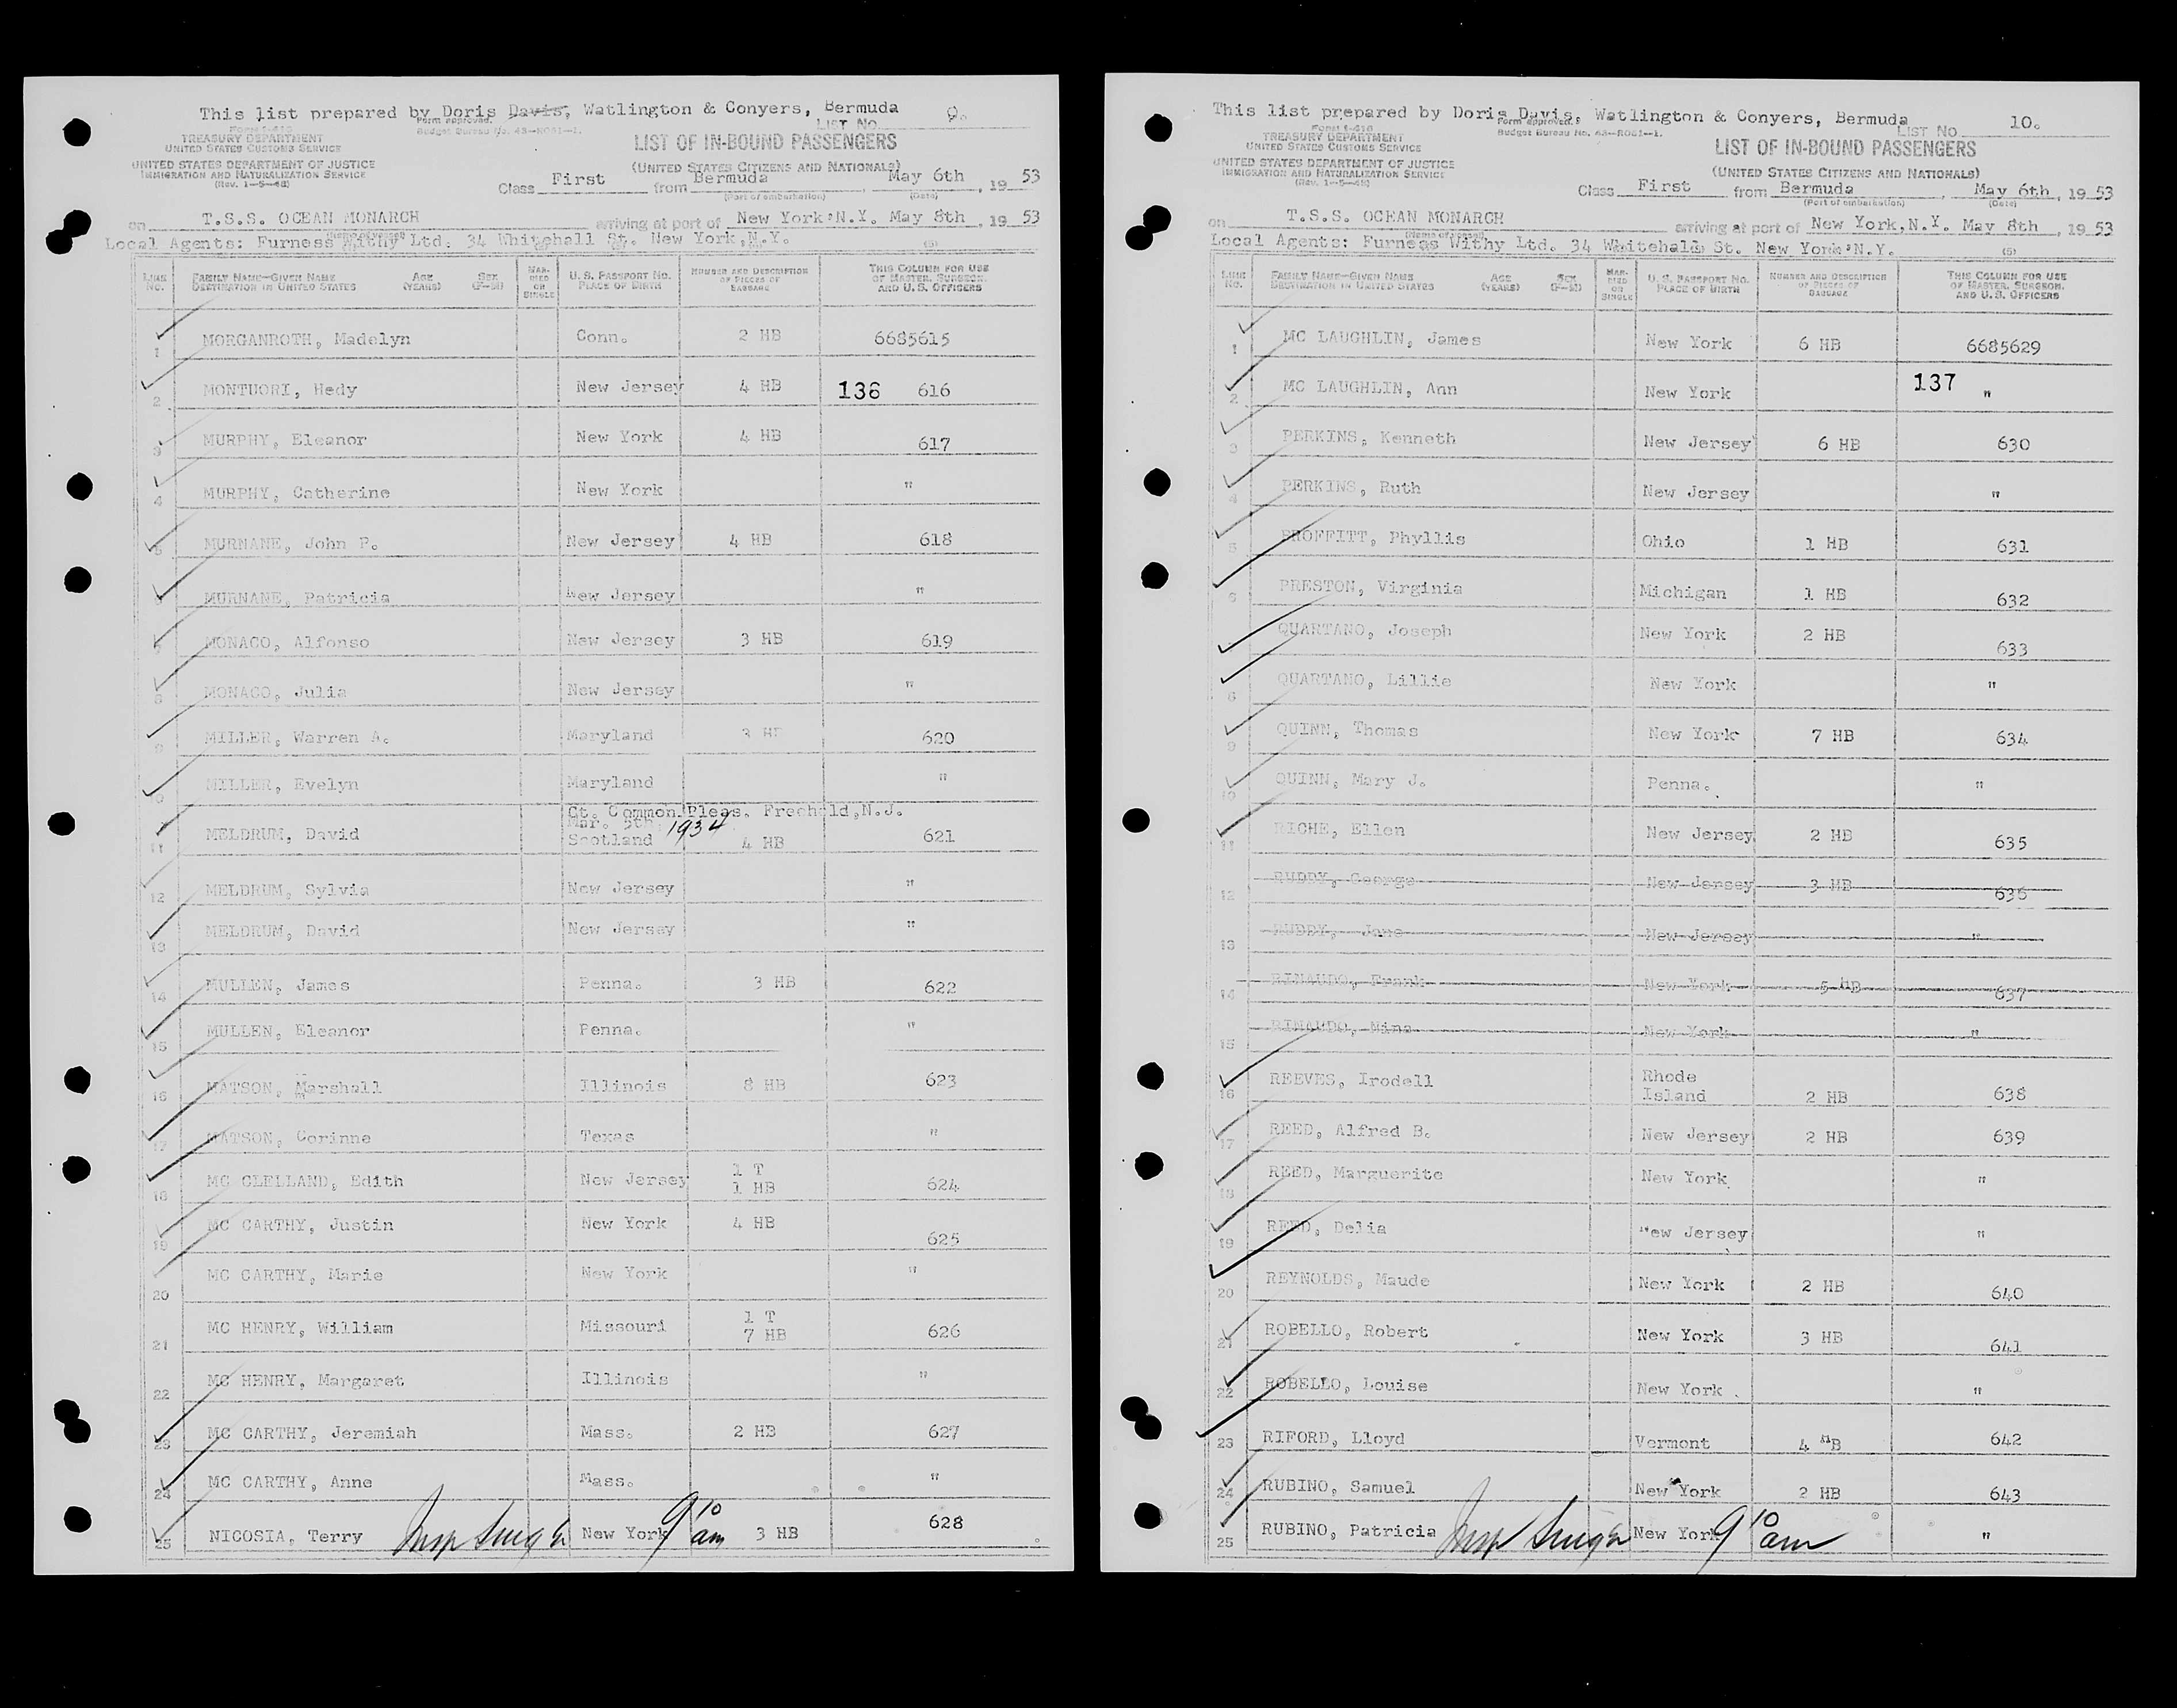 This list prepared by Doris Davis, Watlington & Conyers, Bermuda
Form approved.
Budget Bureau No. 43-R061-1.
LIST No. 9.
Form I-416
TREASURY DEPARTMENT
UNITED STATES CUSTOMS SERVICE
UNITED STATES DEPARTMENT OF JUSTICE
IMMIGRATION AND NATURALIZATION SERVICE
(Rev. 1-5-48)
LIST OF IN-BOUND PASSENGERS
(UNITED STATES CITIZENS AND NATIONALS)
Class First from Bermuda, May 6th, 19 53
(Port of embarkation) (Date)
on T.S.S. OCEAN MONARCH arriving at port of New York, N.Y. May 8th, 19 53
(Name of vessel)
Local Agents: Furness Withy Ltd. 34 Whitehall St. New York, N.Y. (5)
LINE No. FAMILY NAME—GIVEN NAME DESTINATION IN UNITED STATES AGE (YEARS) SEX (F-M) MARRIED OR SINGLE U. S. PASSPORT No. PLACE OF BIRTH NUMBER AND DESCRIPTION OF PIECES OF BAGGAGE THIS COLUMN FOR USE OF MASTER, SURGEON, AND U. S. OFFICERS
1 MORGANROTH, Madelyn Conn. 2 HB 6685615
2 MONTUORI, Hedy New Jersey 4 HB 136 616
3 MURPHY, Eleanor New York 4 HB 617
4 MURPHY, Catherine New York "
5 MURNANE, John P. New Jersey 4 HB 618
6 MURNANE, Patricia New Jersey "
7 MONACO, Alfonso New Jersey 3 HB 619
8 MONACO, Julia New Jersey "
9 MILLER, Warren A. Maryland 3 HB 620
10 MILLER, Evelyn Maryland "
Ct. Common Pleas. Freehold, N.J.
Mar. 5th 1934
11 MELDRUM, David Scotland 4 HB 621
12 MELDRUM, Sylvia New Jersey "
13 MELDRUM, David New Jersey "
14 MULLEN, James Penna. 3 HB 622
15 MULLEN, Eleanor Penna. "
16 MATSON, Marshall Illinois 8 HB 623
17 MATSON, Corinne Texas "
18 MC CLELLAND, Edith New Jersey 1 T 1 HB 624
19 MC CARTHY, Justin New York 4 HB 625
20 MC CARTHY, Marie New York "
21 MC HENRY, William Missouri 1 T 7 HB 626
22 MC HENRY, Margaret Illinois "
23 MC CARTHY, Jeremiah Mass. 2 HB 627
24 MC CARTHY, Anne Mass. "
25 NICOSIA, Terry New York 9 10 am 3 HB 628
This list prepared by Doris Davis, Watlington & Conyers, Bermuda
Form approved.
Budget Bureau No. 43-R061-1.
LIST No. 10.
Form I-416
TREASURY DEPARTMENT
UNITED STATES CUSTOMS SERVICE
UNITED STATES DEPARTMENT OF JUSTICE
IMMIGRATION AND NATURALIZATION SERVICE
(Rev. 1-5-48)
LIST OF IN-BOUND PASSENGERS
(UNITED STATES CITIZENS AND NATIONALS)
Class First from Bermuda, May 6th, 19 53
(Port of embarkation) (Date)
on T.S.S. OCEAN MONARCH arriving at port of New York, N.Y. May 8th, 19 53
(Name of vessel)
Local Agents: Furness Withy Ltd. 34 Whitehall St. New York, N.Y. (5)
LINE No. FAMILY NAME—GIVEN NAME DESTINATION IN UNITED STATES AGE (YEARS) SEX (F-M) MARRIED OR SINGLE U. S. PASSPORT No. PLACE OF BIRTH NUMBER AND DESCRIPTION OF PIECES OF BAGGAGE THIS COLUMN FOR USE OF MASTER, SURGEON, AND U. S. OFFICERS
1 MC LAUGHLIN, James New York 6 HB 6685629
2 MC LAUGHLIN, Ann New York 137 "
3 PERKINS, Kenneth New Jersey 6 HB 630
4 PERKINS, Ruth New Jersey "
5 PROFFITT, Phyllis Ohio 1 HB 631
6 PRESTON, Virginia Michigan 1 HB 632
QUARTANO, Joseph New York 2 HB 633
8 QUARTANO, Lillie New York "
9 QUINN, Thomas New York 7 HB 634
10 QUINN, Mary J. Penna. "
11 RICHE, Ellen New Jersey 2 HB 635
12 RUDDY, George New Jersey 3 HB 636
13 RUDDY, Jane New Jersey "
14 RINAUDO, Frank New York 5 HB 637
15 RINAUDO, Nina New York "
16 REEVES, Irodell Rhode Island 2 HB 638
17 REED, Alfred B. New Jersey 2 HB 639
18 REED, Marguerite New York "
19 REED, Delia New Jersey "
20 REYNOLDS, Maude New York 2 HB 640
21 ROBELLO, Robert New York 3 HB 641
22 ROBELLO, Louise New York "
23 RIFORD, Lloyd Vermont 4 HB 642
24 RUBINO, Samuel New York 2 HB 643
25 RUBINO, Patricia New York 9 10 am "